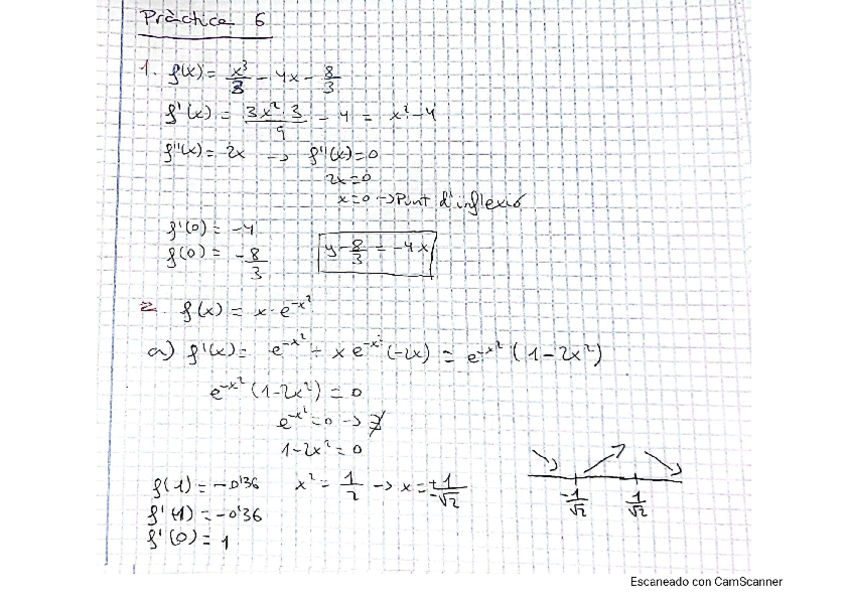 Pràctica 6
1. f(x) = x³/3 - 4x - 8/3
f'(x) = 3x²·3/9 - 4 = x² - 4
f''(x) = 2x → f''(x) = 0
2x = 0
x = 0 → Punt d'inflexió
f'(0) = -4
f(0) = -8/3
y - 8/3 = -4x
2. f(x) = x · e^-x²
a) f'(x) = e^-x² + x e^-x² (-2x) = e^-x² (1 - 2x²)
e^-x² (1 - 2x²) = 0
e^-x² = 0 → ∄
1 - 2x² = 0
x² = 1/2 → x = ±1/√2
f'(-1) = -0'36
f'(1) = -0'36
f'(0) = 1
-1/√2 1/√2
Escaneado con CamScanner